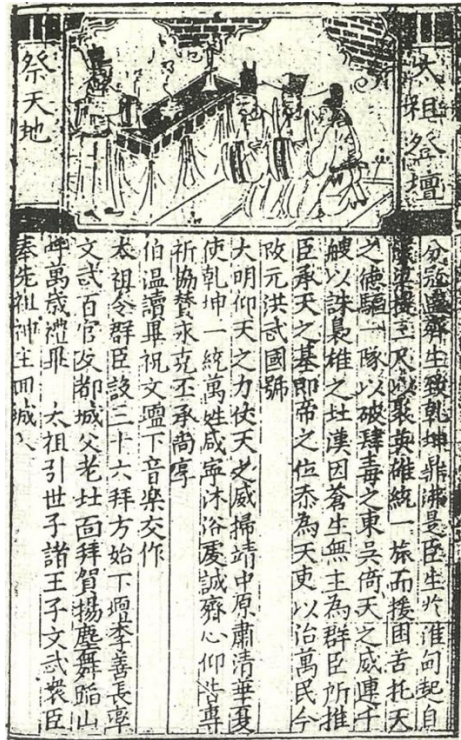 太祖登壇
祭天地
齊生致乾坤鼎沸是臣生於淮甸起自
梁提三尺以聚英雄統一旅而援困苦托天
之德驅一隊以破肆毒之東吳倚天之威連千
艘以誅梟雄之壯漢因蒼生無主為群臣所推
臣承天之基即帝之位忝為天吏以治萬民今
改元洪武國號
大明仰天之力伏天之威掃靖中原肅清華夏
使乾坤一統萬姓咸寧沐浴虔誠齊心仰告專
祈協贊永克丕承尚享
伯温讀畢祝文壇下音楽交作
太祖令群臣設三十六拜方始下壇李善長率
文武百官及都城父老北面拜賀揚塵舞蹈山
呼萬歲禮畢 太祖引世子諸王子文武衆臣
奉先祖神主回城入